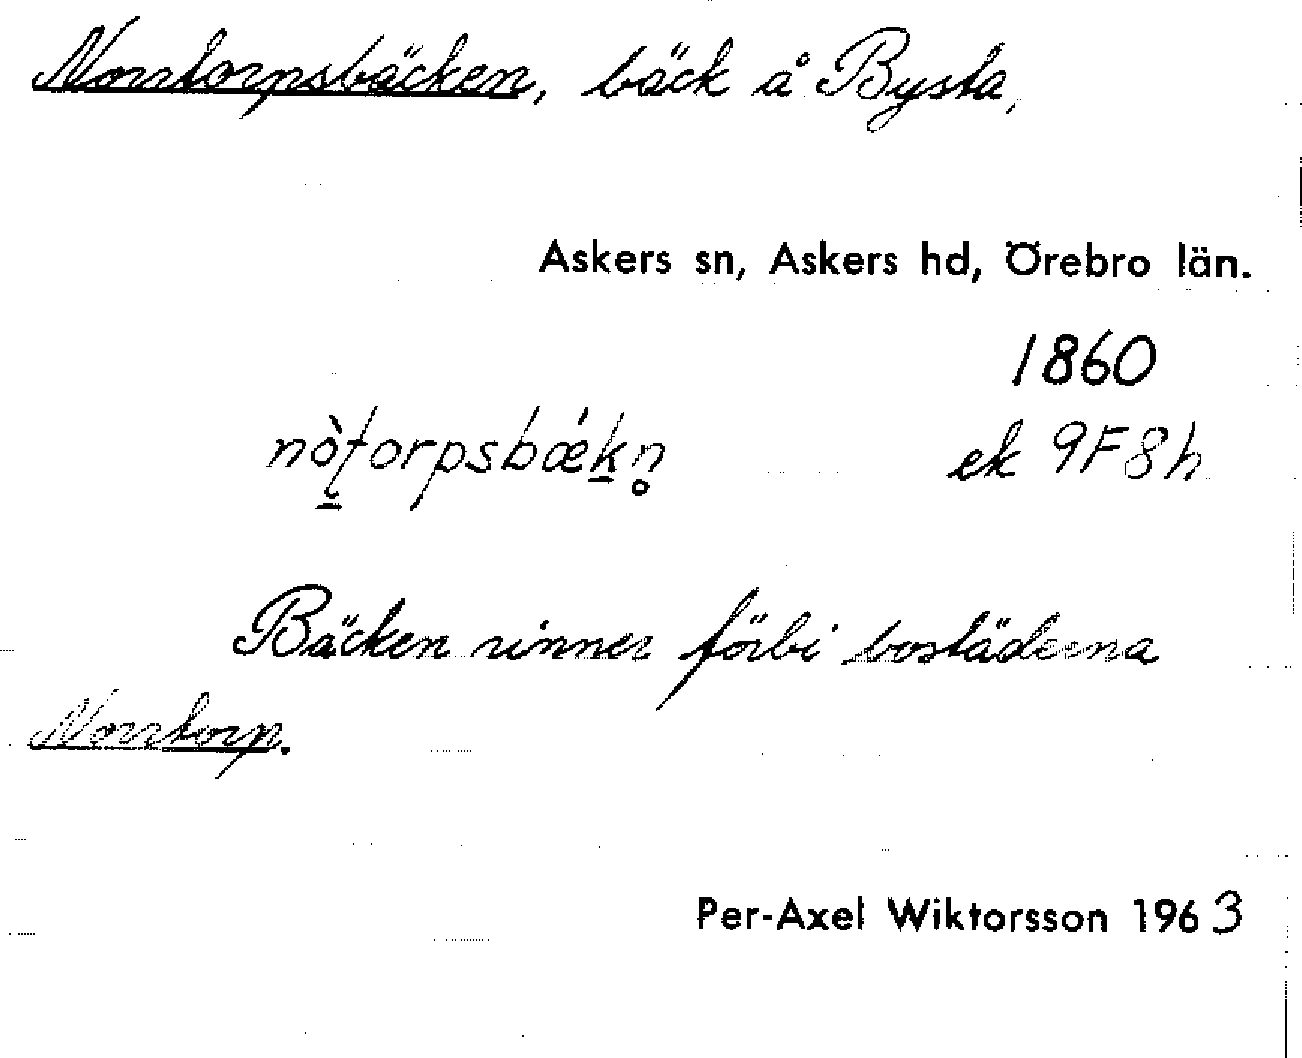 Norrtorpsbäcken, bäck å Bysta,
Askers sn, Askers hd, Örebro län.
1860
nòṱorpsbǽk̲n̥ ek 9F8h
Bäcken rinner förbi bostäderna
Norrtorp.
Per-Axel Wiktorsson 1963